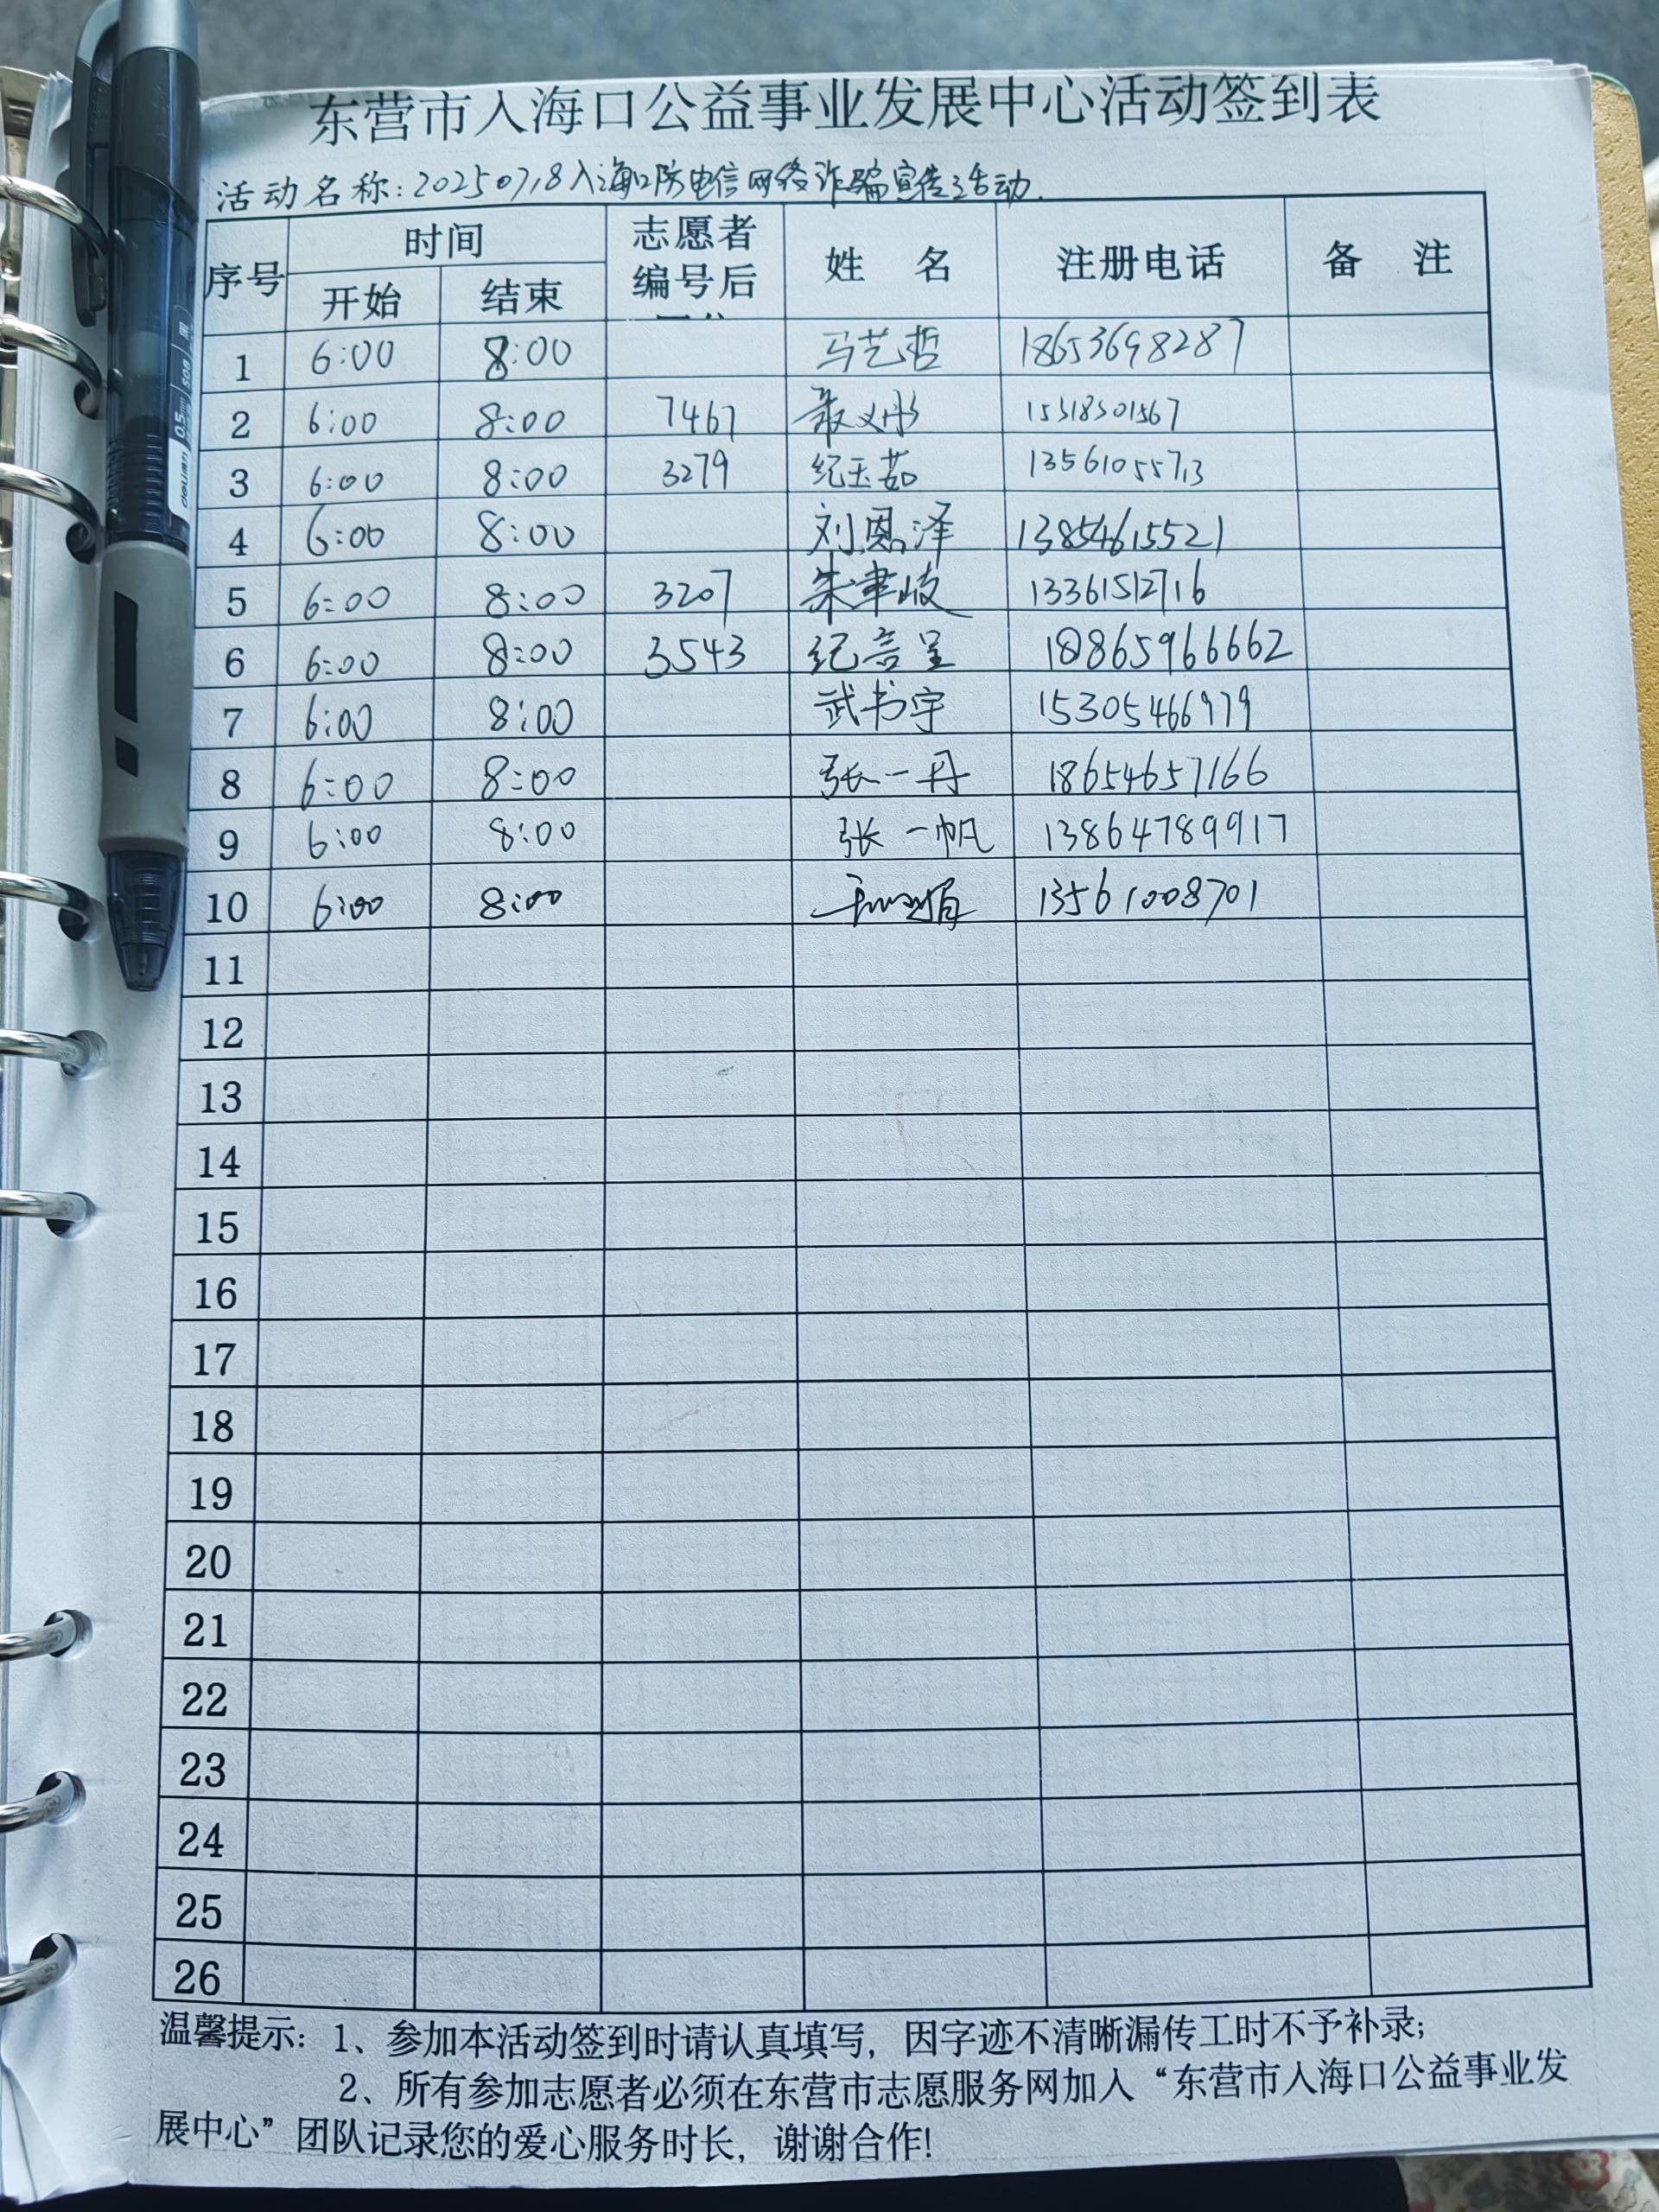 东营市入海口公益事业发展中心活动签到表
活动名称：20250718入海口防电信网络诈骗宣传活动.
序号 时间 志愿者编号后 姓 名 注册电话 备 注
开始 结束
1 6:00 8:00 马艺哲 18653698287
2 6:00 8:00 7467 15318301567
3 6:00 8:00 3279 纪玉茹 13561055713
4 6:00 8:00 刘恩泽 13854615521
5 6:00 8:00 3207 朱聿岐 13361512716
6 6:00 8:00 3543 纪言呈 18865966662
7 6:00 8:00 武书宇 15305466979
8 6:00 8:00 张一丹 18654657166
9 6:00 8:00 张一帆 13864789917
10 6:00 8:00 13561008701
11
12
13
14
15
16
17
18
19
20
21
22
23
24
25
26
温馨提示：1、参加本活动签到时请认真填写，因字迹不清晰漏传工时不予补录；
2、所有参加志愿者必须在东营市志愿服务网加入“东营市入海口公益事业发
展中心”团队记录您的爱心服务时长，谢谢合作！
deli
0.5mm
S08
黑